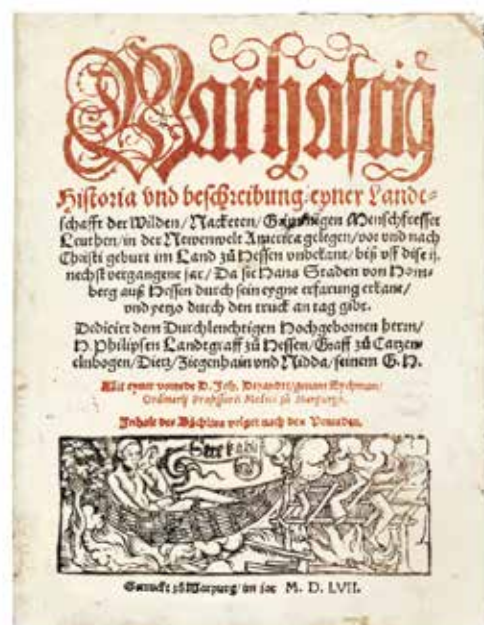 Warhaftig
Historia vnd beschreibung eyner Landt-
schafft der Wilden / Nacketen / Grimmigen Menschfresser
Leuthen / in der Newenwelt America gelegen / vor vnd nach
Christi geburt im Land zů Hessen vnbekant / biß vff dise ij.
nechst vergangene jar / Da sie Hans Staden von Hom-
berg auß Hessen durch sein eygne erfarung erkant /
vnd yetzo durch den truck an tag gibt.
Dedicirt dem Durchleuchtigen Hochgebornen herrn /
H. Philipsen Landtgraff zů Hessen / Graff zů Catzen-
elnbogen / Dietz / Ziegenhain vnd Nidda / seinem G. H.
Mit eyner vorrede D. Joh. Dryandri / genant Eychman /
Ordinarij Professoris Medici zů Marpurgk.
Inhalt des Büchlins volget nach den Vorreden.
Getruckt zů Marpurg / im jar M. D. LVII.